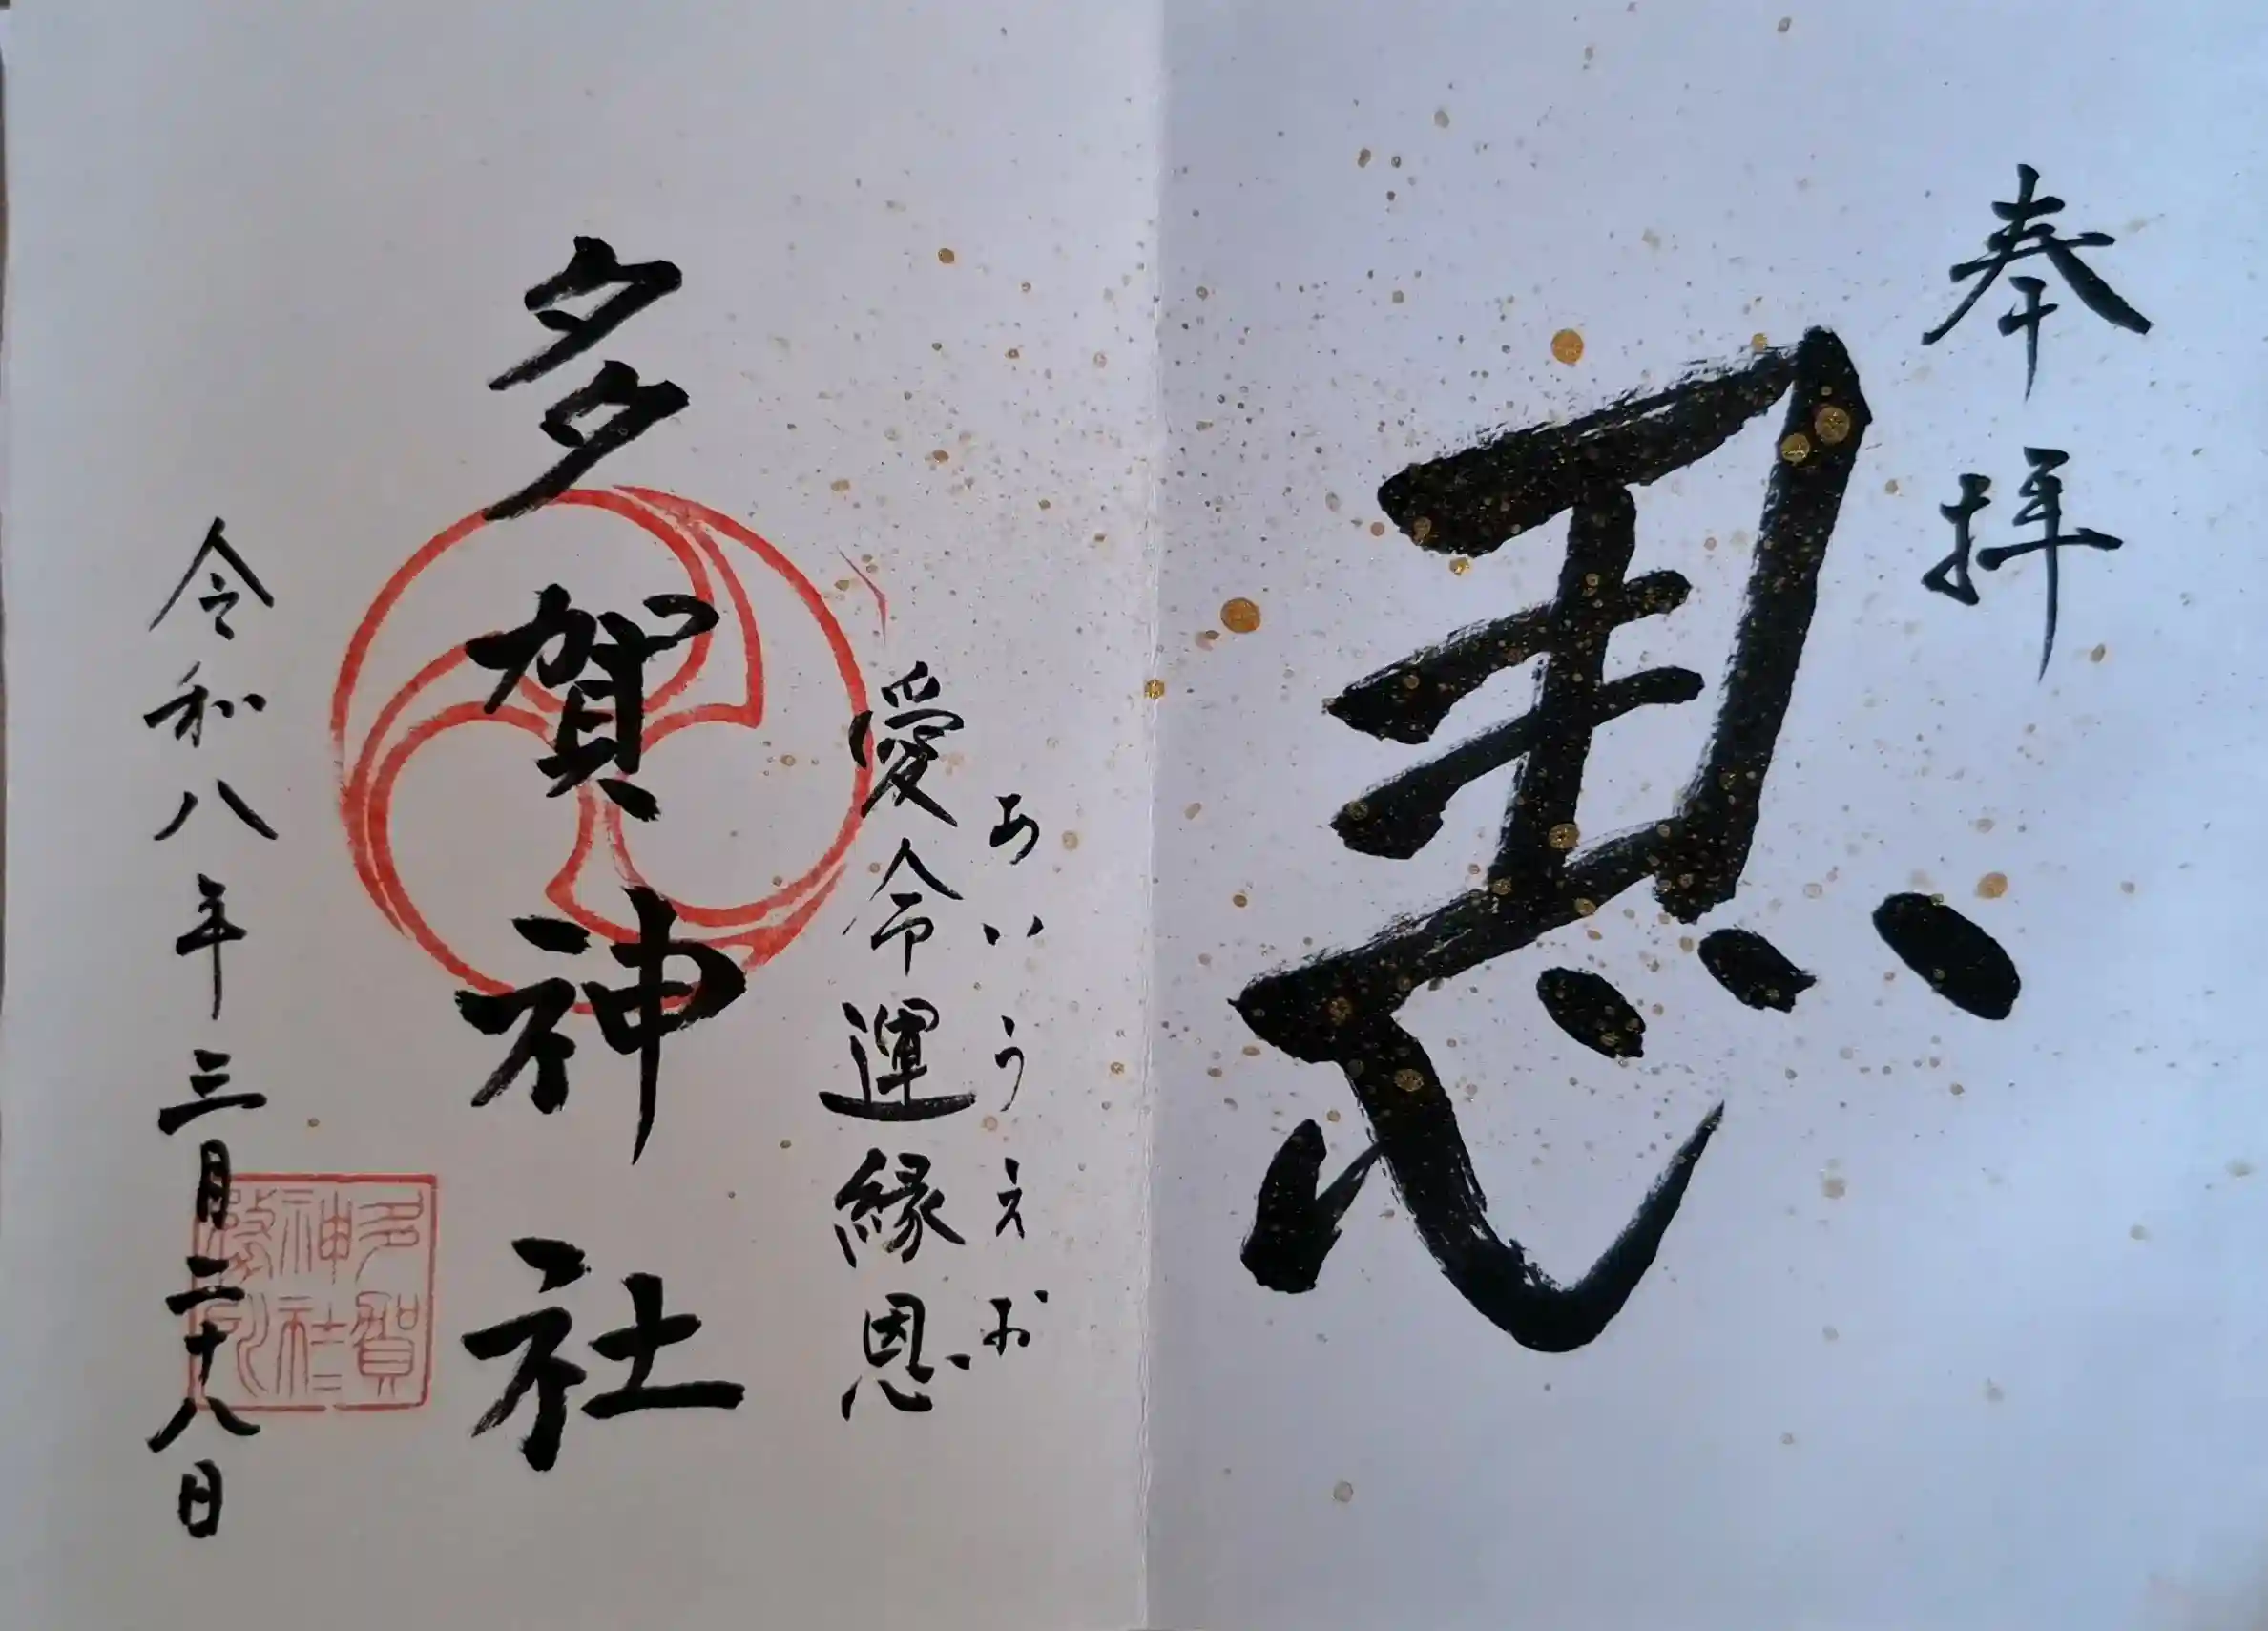 奉拝
あいうえお
愛命運縁恩
多賀神社
令和八年三月二十八日
多賀
神社